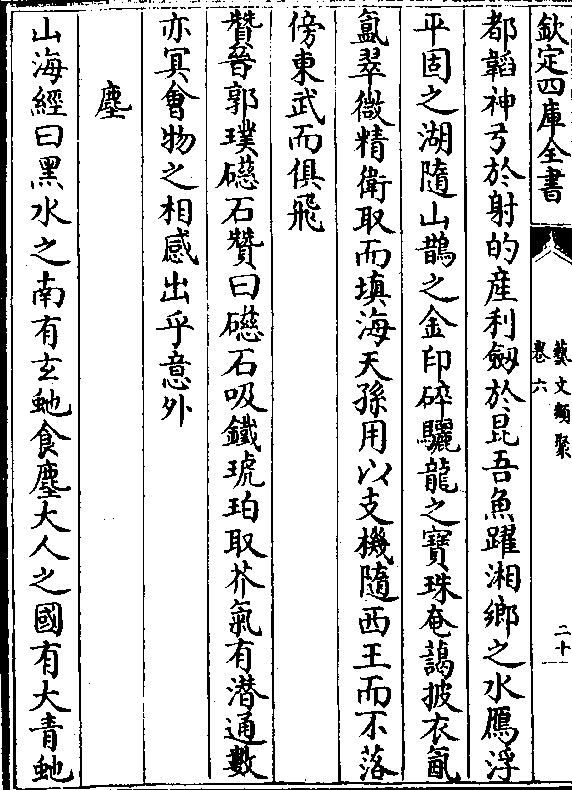 欽定四庫全書
藝文類聚
卷六
二十
都韜神弓於射的産利劒於昆吾魚躍湘鄉之水鴈浮
平固之湖隨山鵲之金印碎驪龍之寶珠奄藹披衣氤
氳翠微精衛取而填海天孫用以支機隨西王而不落
傍東武而俱飛
贊晉郭璞礠石贊曰礠石吸鐵琥珀取芥氣有潛通數
亦冥會物之相感出乎意外
塵
山海經曰黑水之南有玄虵食塵大人之國有大青虵